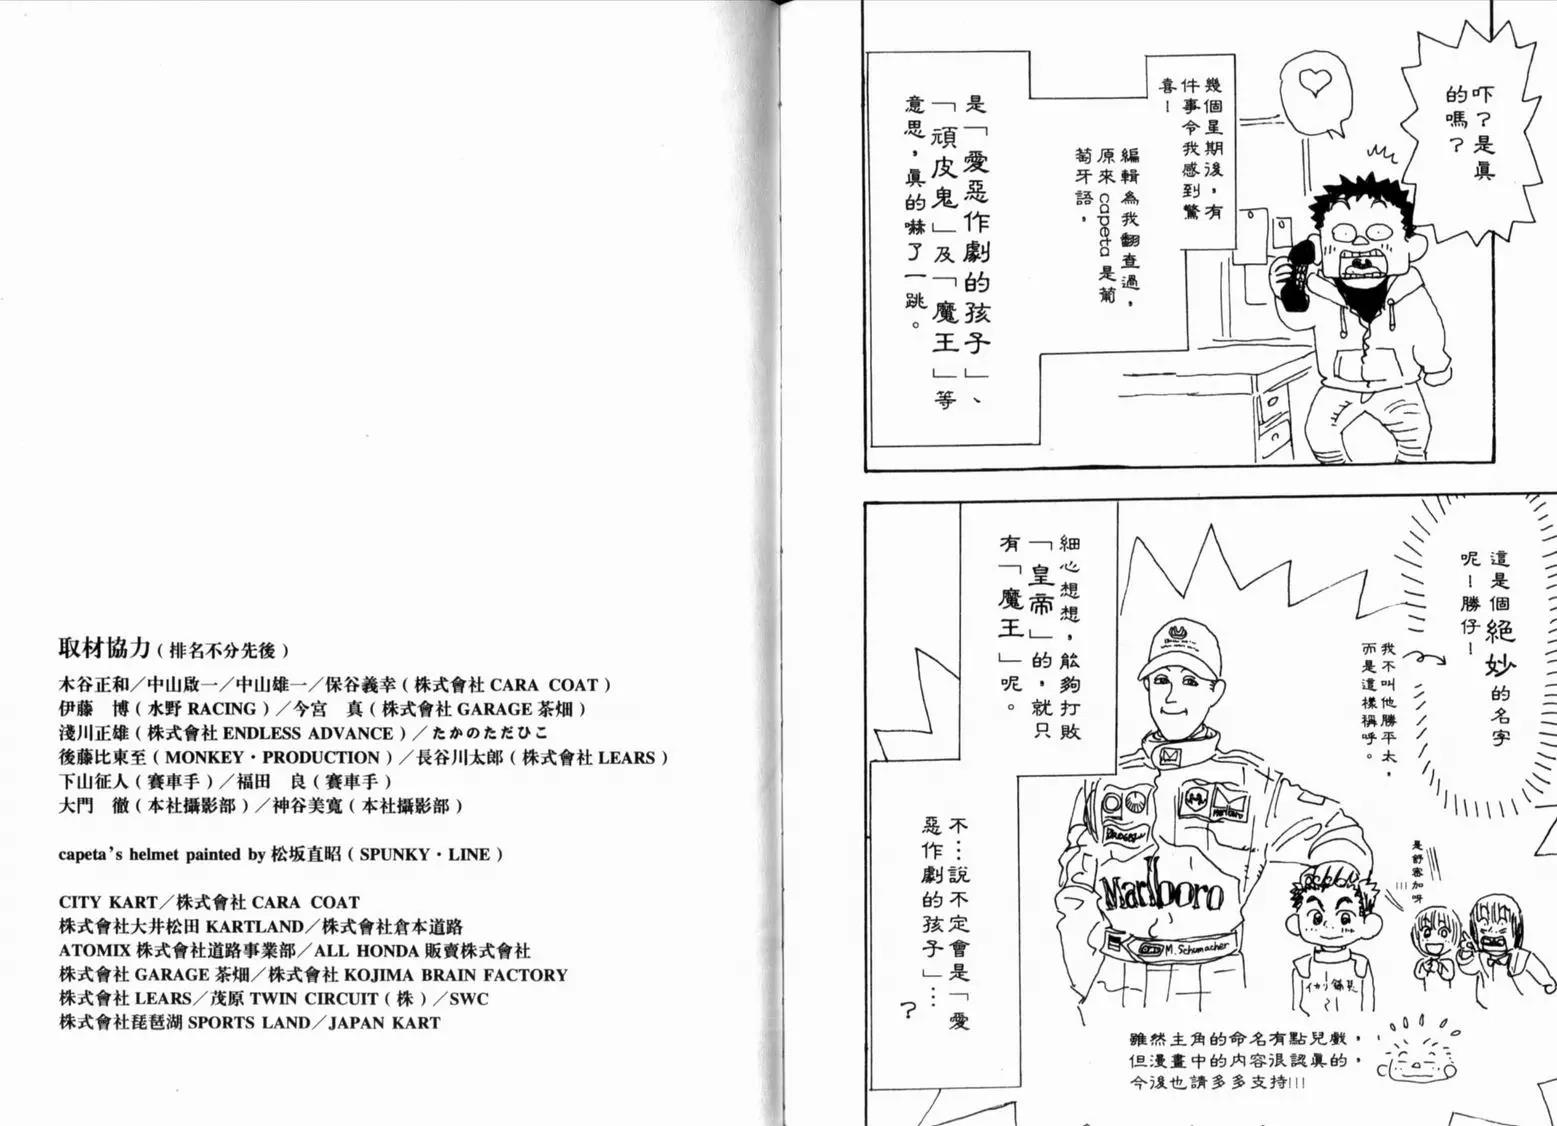 吓？是真
的嗎？
幾個星期後，有
件事令我感到驚
喜！
編輯為我翻查過，
原來capeta是葡
萄牙語，
是「愛惡作劇的孩子」、
「頑皮鬼」及「魔王」等
意思，真的嚇了一跳。
這是個絕妙的名字
呢！勝仔！
我不叫他勝平太，
而是這樣稱呼。
細心想想，能夠打敗
「皇帝」的，就只
有「魔王」呢。
Marlboro
M. Schumacher
是舒審加呀
!!!
不…說不定會是「愛
惡作劇的孩子」…
？
雖然主角的命名有點兒戲，
但漫畫中的內容很認真的，
今後也請多多支持!!!
取材協力（排名不分先後）
木谷正和／中山啟一／中山雄一／保谷義幸（株式會社CARA COAT）
伊藤　博（水野RACING）／今宮　真（株式會社GARAGE茶畑）
淺川正雄（株式會社ENDLESS ADVANCE）／たかのただひこ
後藤比東至（MONKEY・PRODUCTION）／長谷川太郎（株式會社LEARS）
下山征人（賽車手）／福田　良（賽車手）
大門　徹（本社攝影部）／神谷美寬（本社攝影部）
capeta's helmet painted by 松坂直昭（SPUNKY・LINE）
CITY KART／株式會社CARA COAT
株式會社大井松田KARTLAND／株式會社倉本道路
ATOMIX株式會社道路事業部／ALL HONDA販賣株式會社
株式會社GARAGE茶畑／株式會社KOJIMA BRAIN FACTORY
株式會社LEARS／茂原TWIN CIRCUIT（株）／SWC
株式會社琵琶湖SPORTS LAND／JAPAN KART